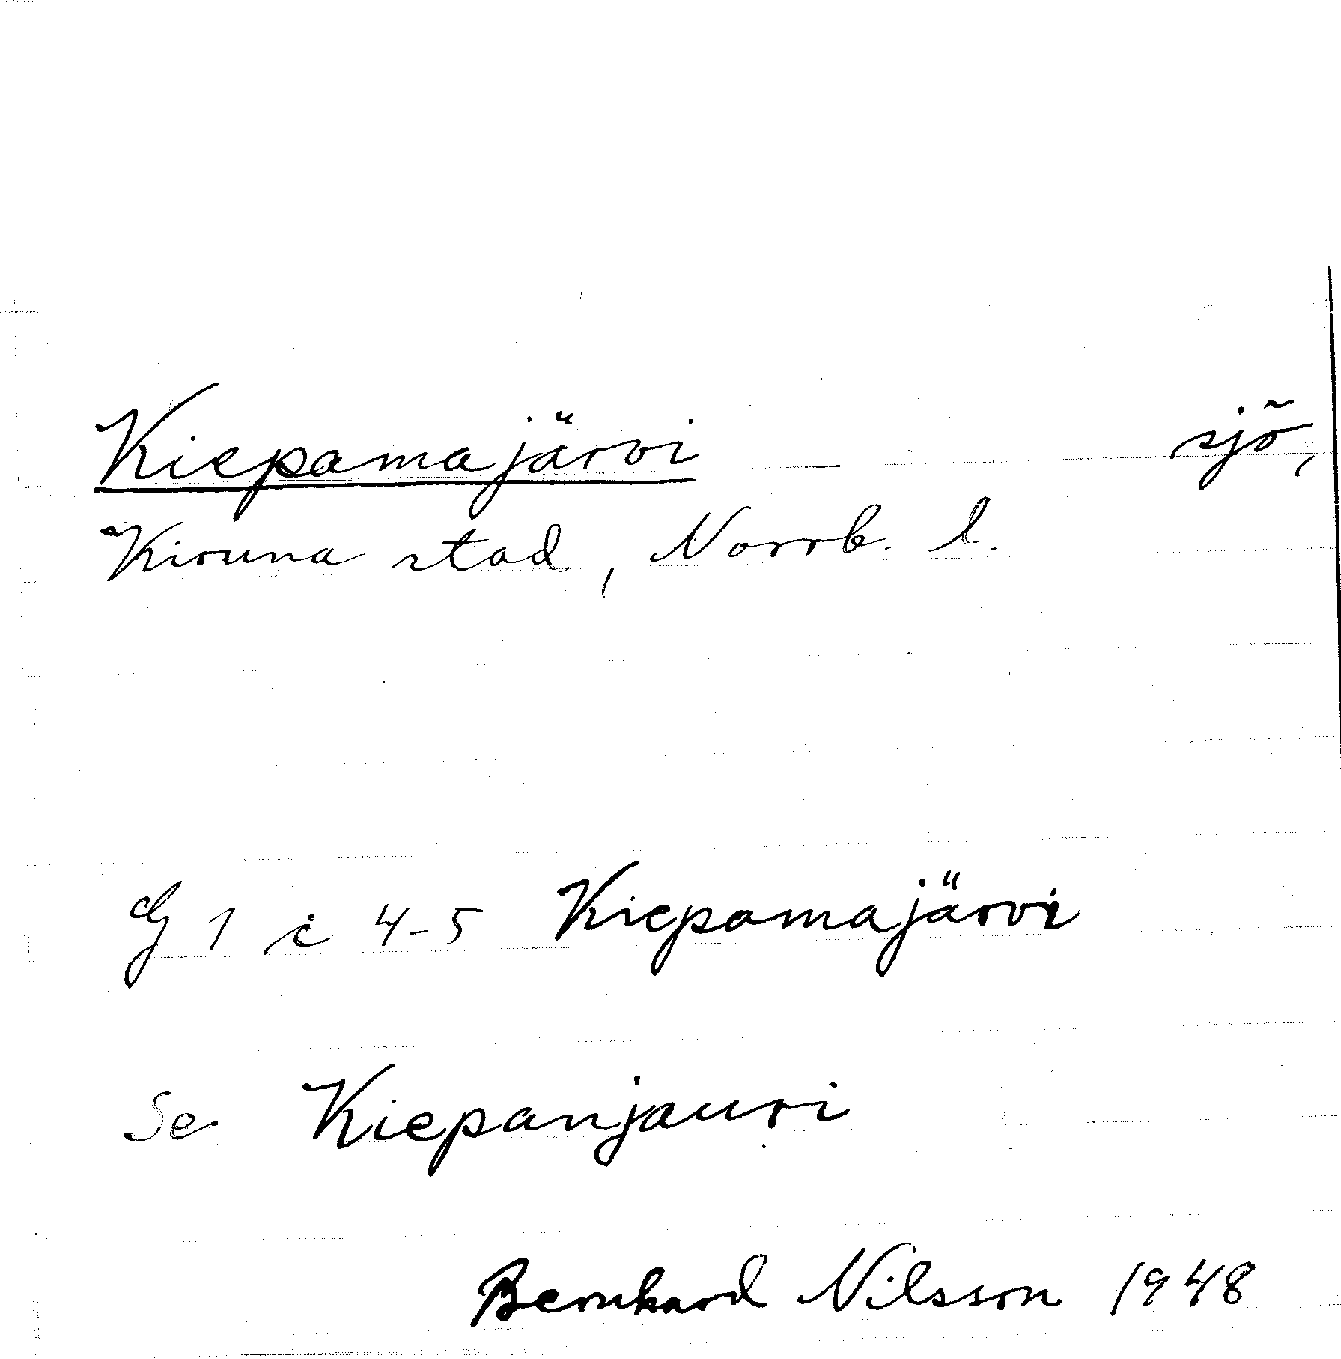 Kiepamajärvi sjö,
Kiruna stad, Norrb. l.
dj 1 i 4-5 Kiepamajärvi
Se Kiepanjauri
Bernhard Nilsson 1948